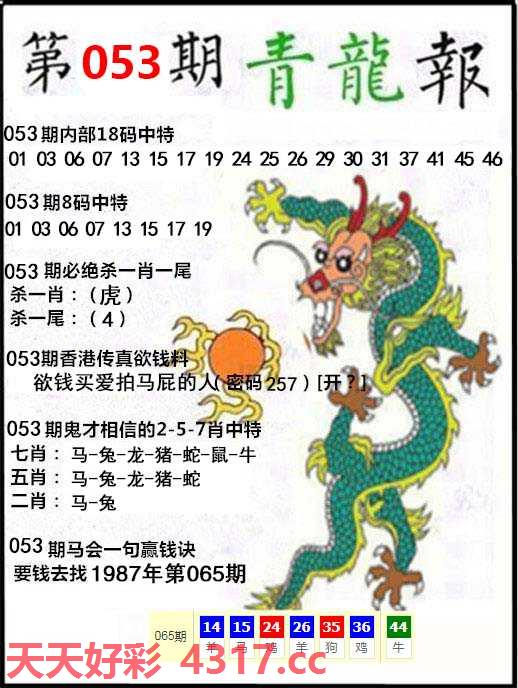 第053期 青龍報
053期内部18码中特
01 03 06 07 13 15 17 19 24 25 26 29 30 31 37 41 45 46
053期8码中特
01 03 06 07 13 15 17 19
053期必绝杀一肖一尾
杀一肖：（虎）
杀一尾：（4）
053期香港传真欲钱料
欲钱买爱拍马屁的人(密码257)[开?]
053期鬼才相信的2-5-7肖中特
七肖：马-兔-龙-猪-蛇-鼠-牛
五肖：马-兔-龙-猪-蛇
二肖：马-兔
053期马会一句赢钱诀
要钱去找1987年第065期
065期 14 15 24 26 35 36 44
羊 马 鸡 羊 狗 鸡 牛
天天好彩 4317.cc